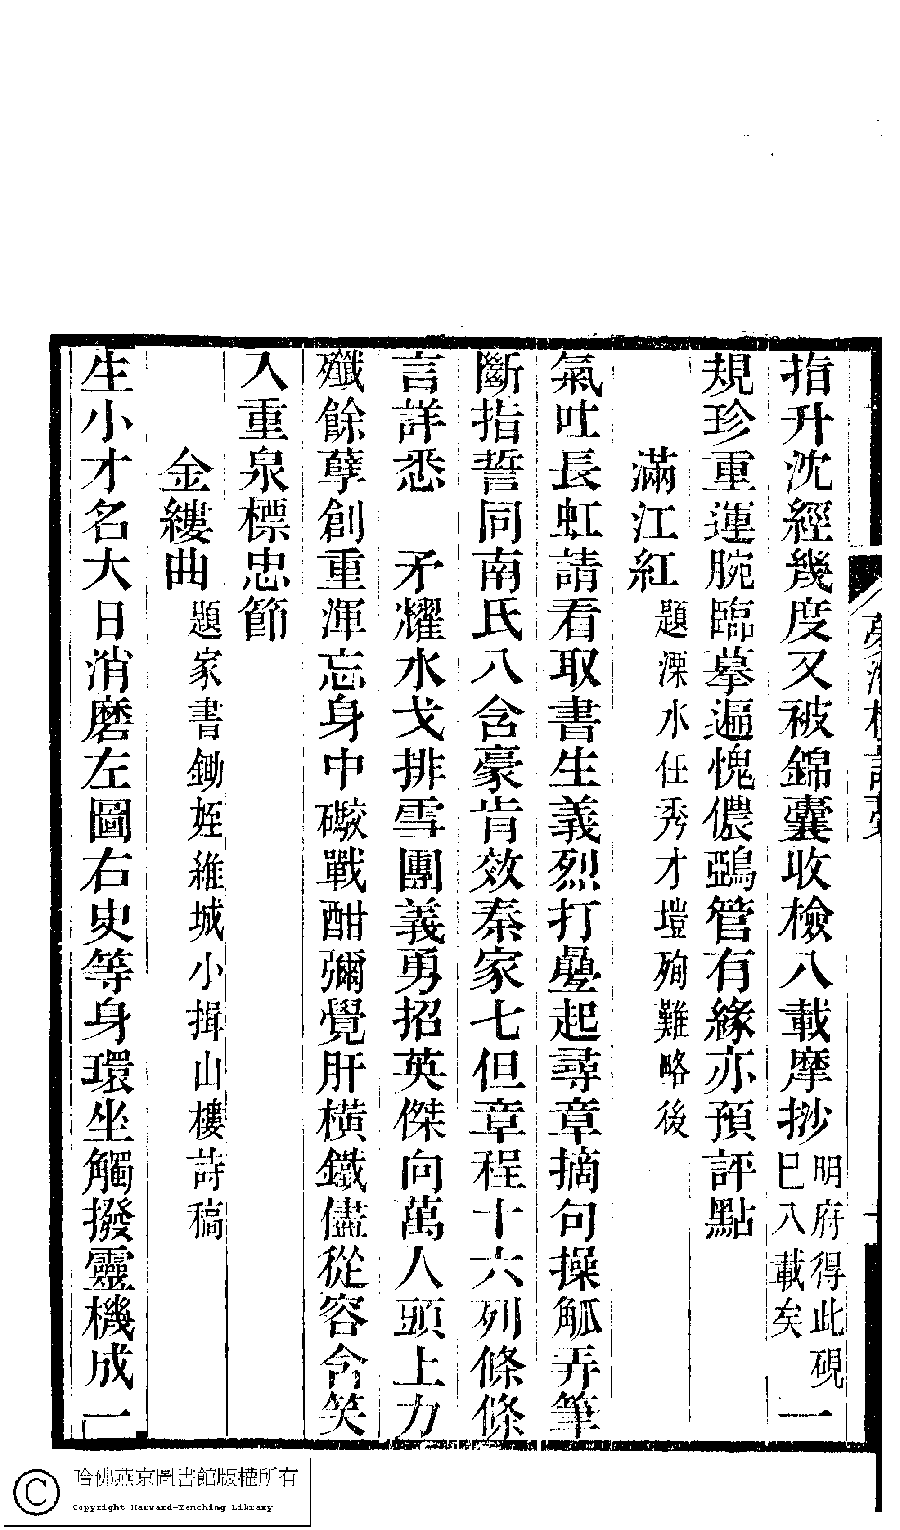 指升沈經幾度又被錦囊收檢八載摩挱明府得此硯巳八載矣一
規珍重蓮腕臨摹遍愧儂鵶管有緣亦預評點
滿江紅題溧水任秀才塏殉難略後
氣吐長虹請看取書生義烈打疊起尋章摘句操觚弄筆
斷指誓同南氏八含豪肯效秦家七但章程十六列條條
言詳悉　矛耀水戈排雪團義勇招英傑向萬人頭上力
殲餘孽創重渾忘身中礮戰酣彌覺肝橫鐵儘從容含笑
入重泉標忠節
金縷曲題家書鋤姪維城小揖山樓詩稿
生小才名大日消磨左圖右史等身環坐觸撥靈機成一
哈佛燕京圖書館版權所有
Copyright Harvard-Yenching Library